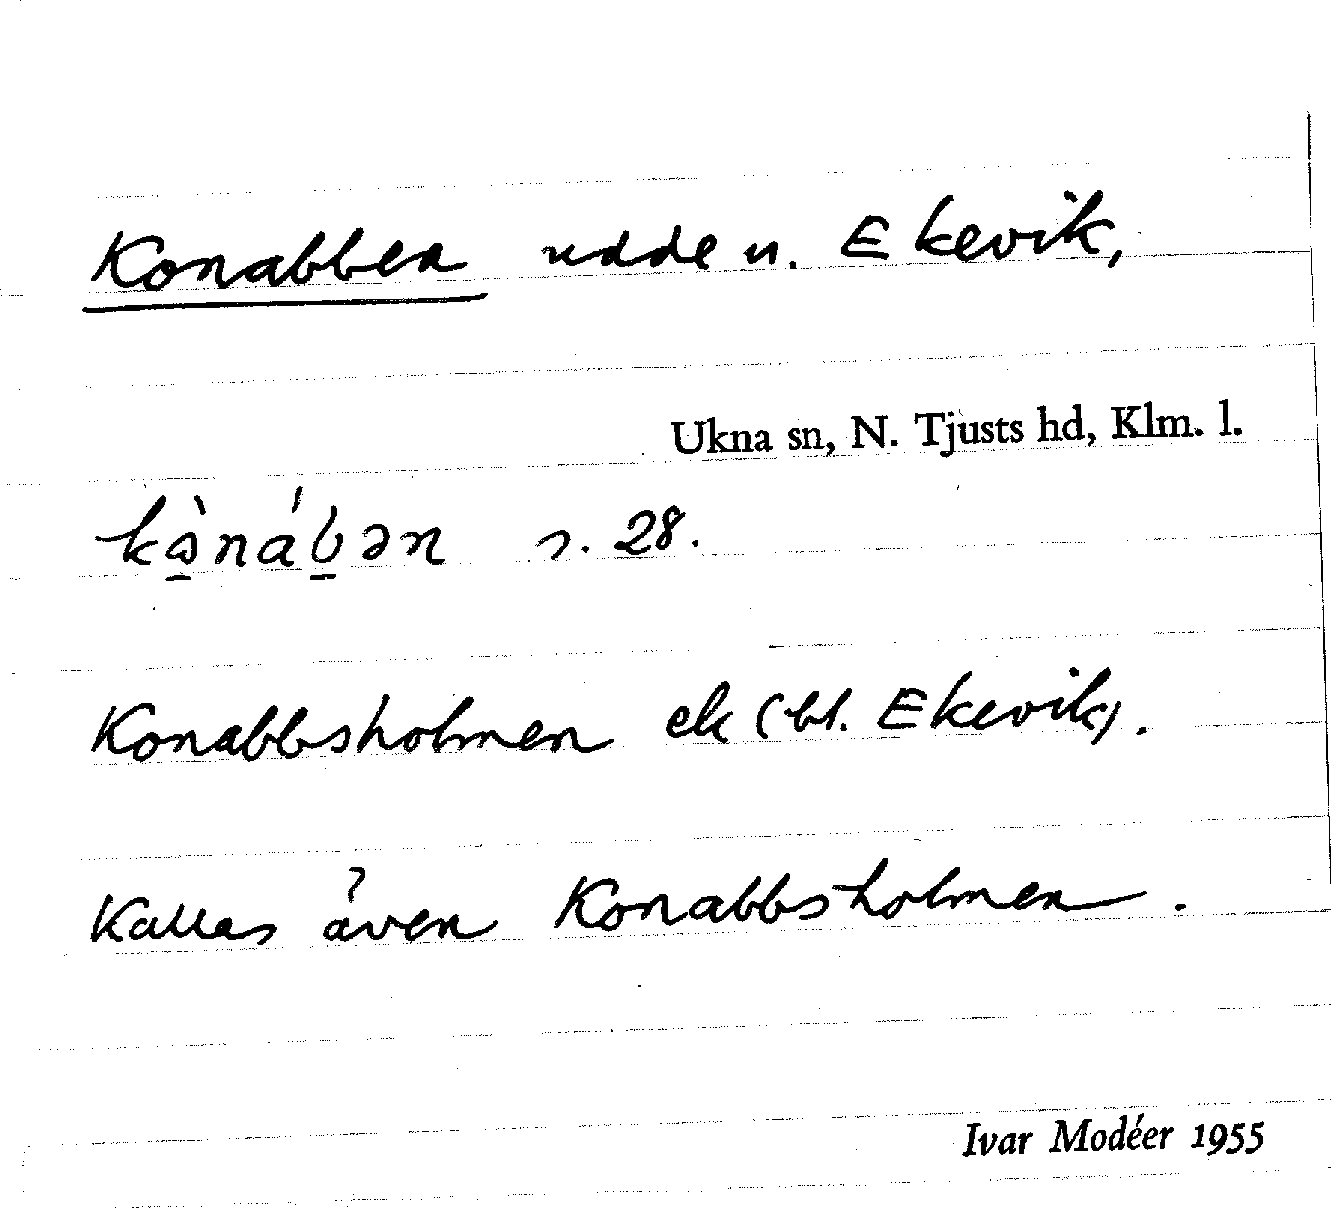 Konabben udde n. Ekevik,
Ukna sn, N. Tjusts hd, Klm. l.
s. 28.
Konabbsholmen ek (bl. Ekevik).
Kallas även Konabbsholmen.
Ivar Modéer 1955